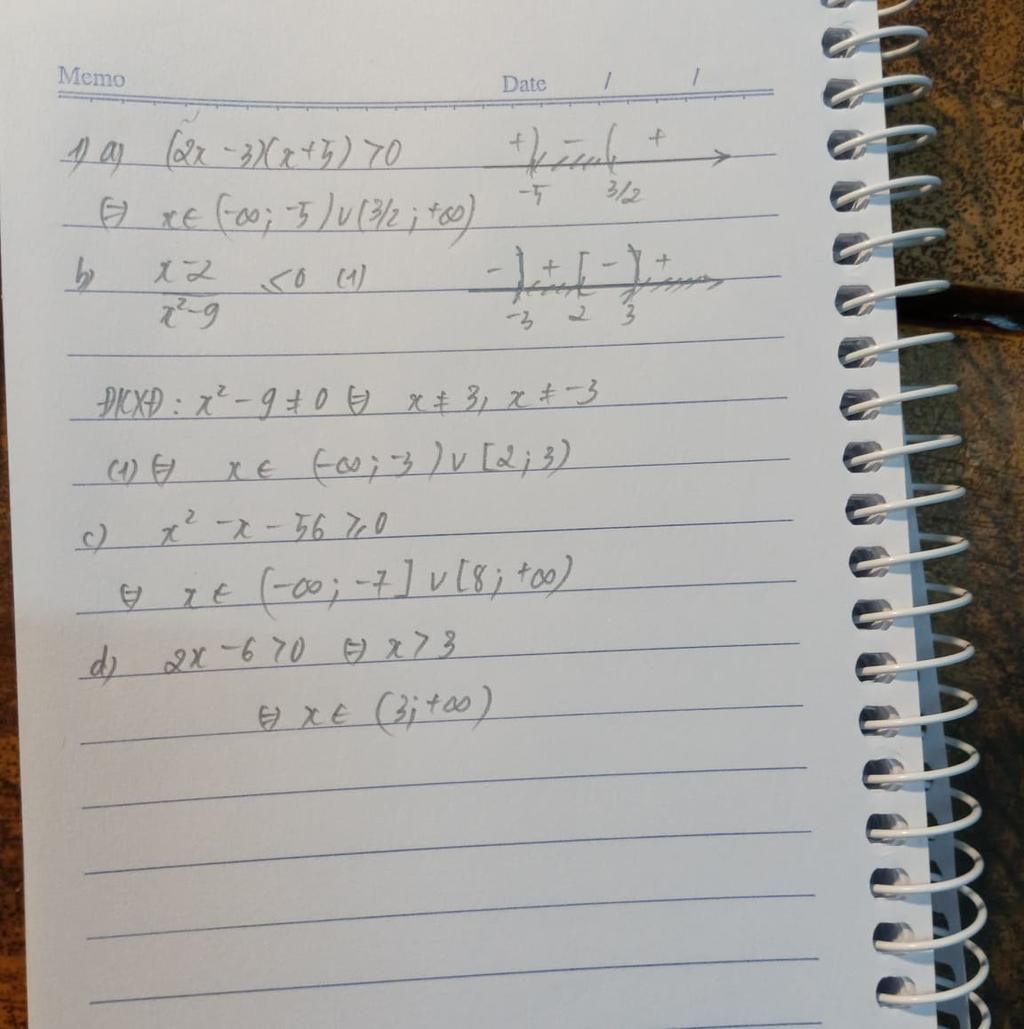 Memo Date / /
1) a) (2x - 3)(x + 5) > 0 +) - ( +
-5 3/2
⇔ x ∈ (-∞; -5) ∪ (3/2; +∞)
b) x-2 / x²-9 ≤ 0 (1) - ) + [ - ) +
-3 2 3
ĐKXĐ: x² - 9 ≠ 0 ⇔ x ≠ 3, x ≠ -3
(1) ⇔ x ∈ (-∞; -3) ∪ [2; 3)
c) x² - x - 56 ≥ 0
⇔ x ∈ (-∞; -7] ∪ [8; +∞)
d) 2x - 6 > 0 ⇔ x > 3
⇔ x ∈ (3; +∞)